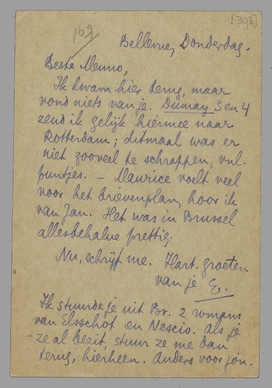 [398]
169
Bellevue, Donderdag.
Beste Menno,
Ik kwam hier terug, maar
vond niets van je. Dumay 3 en 4
zend ik gelijk hiermee naar
Rotterdam; ditmaal was er
niet zooveel te schrappen, vnl.
puntjes. – Maurice voelt veel
voor het brievenplan, hoor ik
van Jan. Het was in Brussel
allesbehalve prettig.
Nu, schrijf me. Hart. groeten
van je E.
Ik stuurde je uit Br. 2 romans
van Elsschot en Nescio. Als je
ze al bezit, stuur ze me dan
terug, hierheen. Anders voor jou.